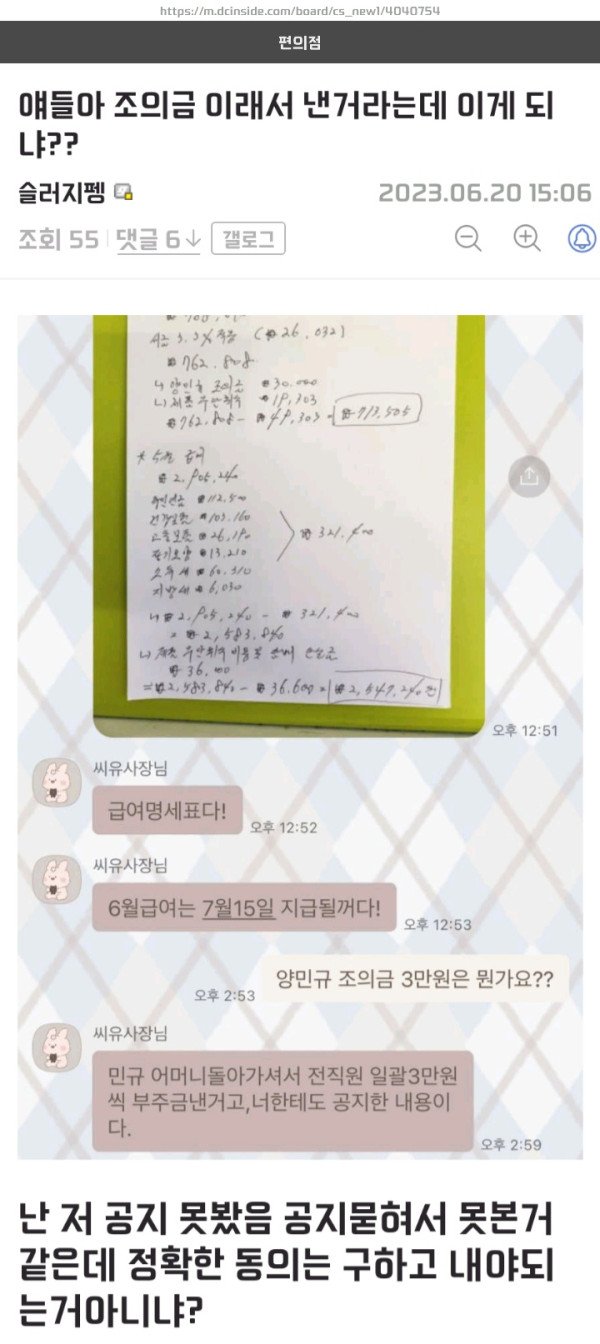 https://m.dcinside.com/board/cs_new1/4040754
편의점
얘들아 조의금 이래서 낸거라는데 이게 되
냐??
슬러지펭
2023.06.20 15:06
조회 55
댓글 6↓
갤로그
세금 3.3% 적용 (₩26,032)
₩762,808
ㄴ) 양민규 조의금 ₩30,000
ㄴ) 제품 무단취식 ₩19,303
₩762,808 - ₩49,303 = ₩713,505
* 5월 급여
₩2,905,240
국민연금 ₩112,500
건강보험 ₩103,160
고용보험 ₩26,190
장기요양 ₩13,210
소득세 ₩60,310
지방세 ₩6,030
₩321,400
ㄴ) ₩2,905,240 - ₩321,400
= ₩2,583,840
ㄴ) 제품 무단취식
₩36,600
= ₩2,583,840 - ₩36,600 = ₩2,547,240원
오후 12:51
씨유사장님
급여명세표다!
오후 12:52
씨유사장님
6월급여는 7월15일 지급될꺼다!
오후 12:53
양민규 조의금 3만원은 뭔가요??
오후 2:53
씨유사장님
민규 어머니돌아가셔서 전직원 일괄3만원
씩 부주금낸거고,너한테도 공지한 내용이
다.
오후 2:59
난 저 공지 못봤음 공지묻혀서 못본거
같은데 정확한 동의는 구하고 내야되
는거아니냐?